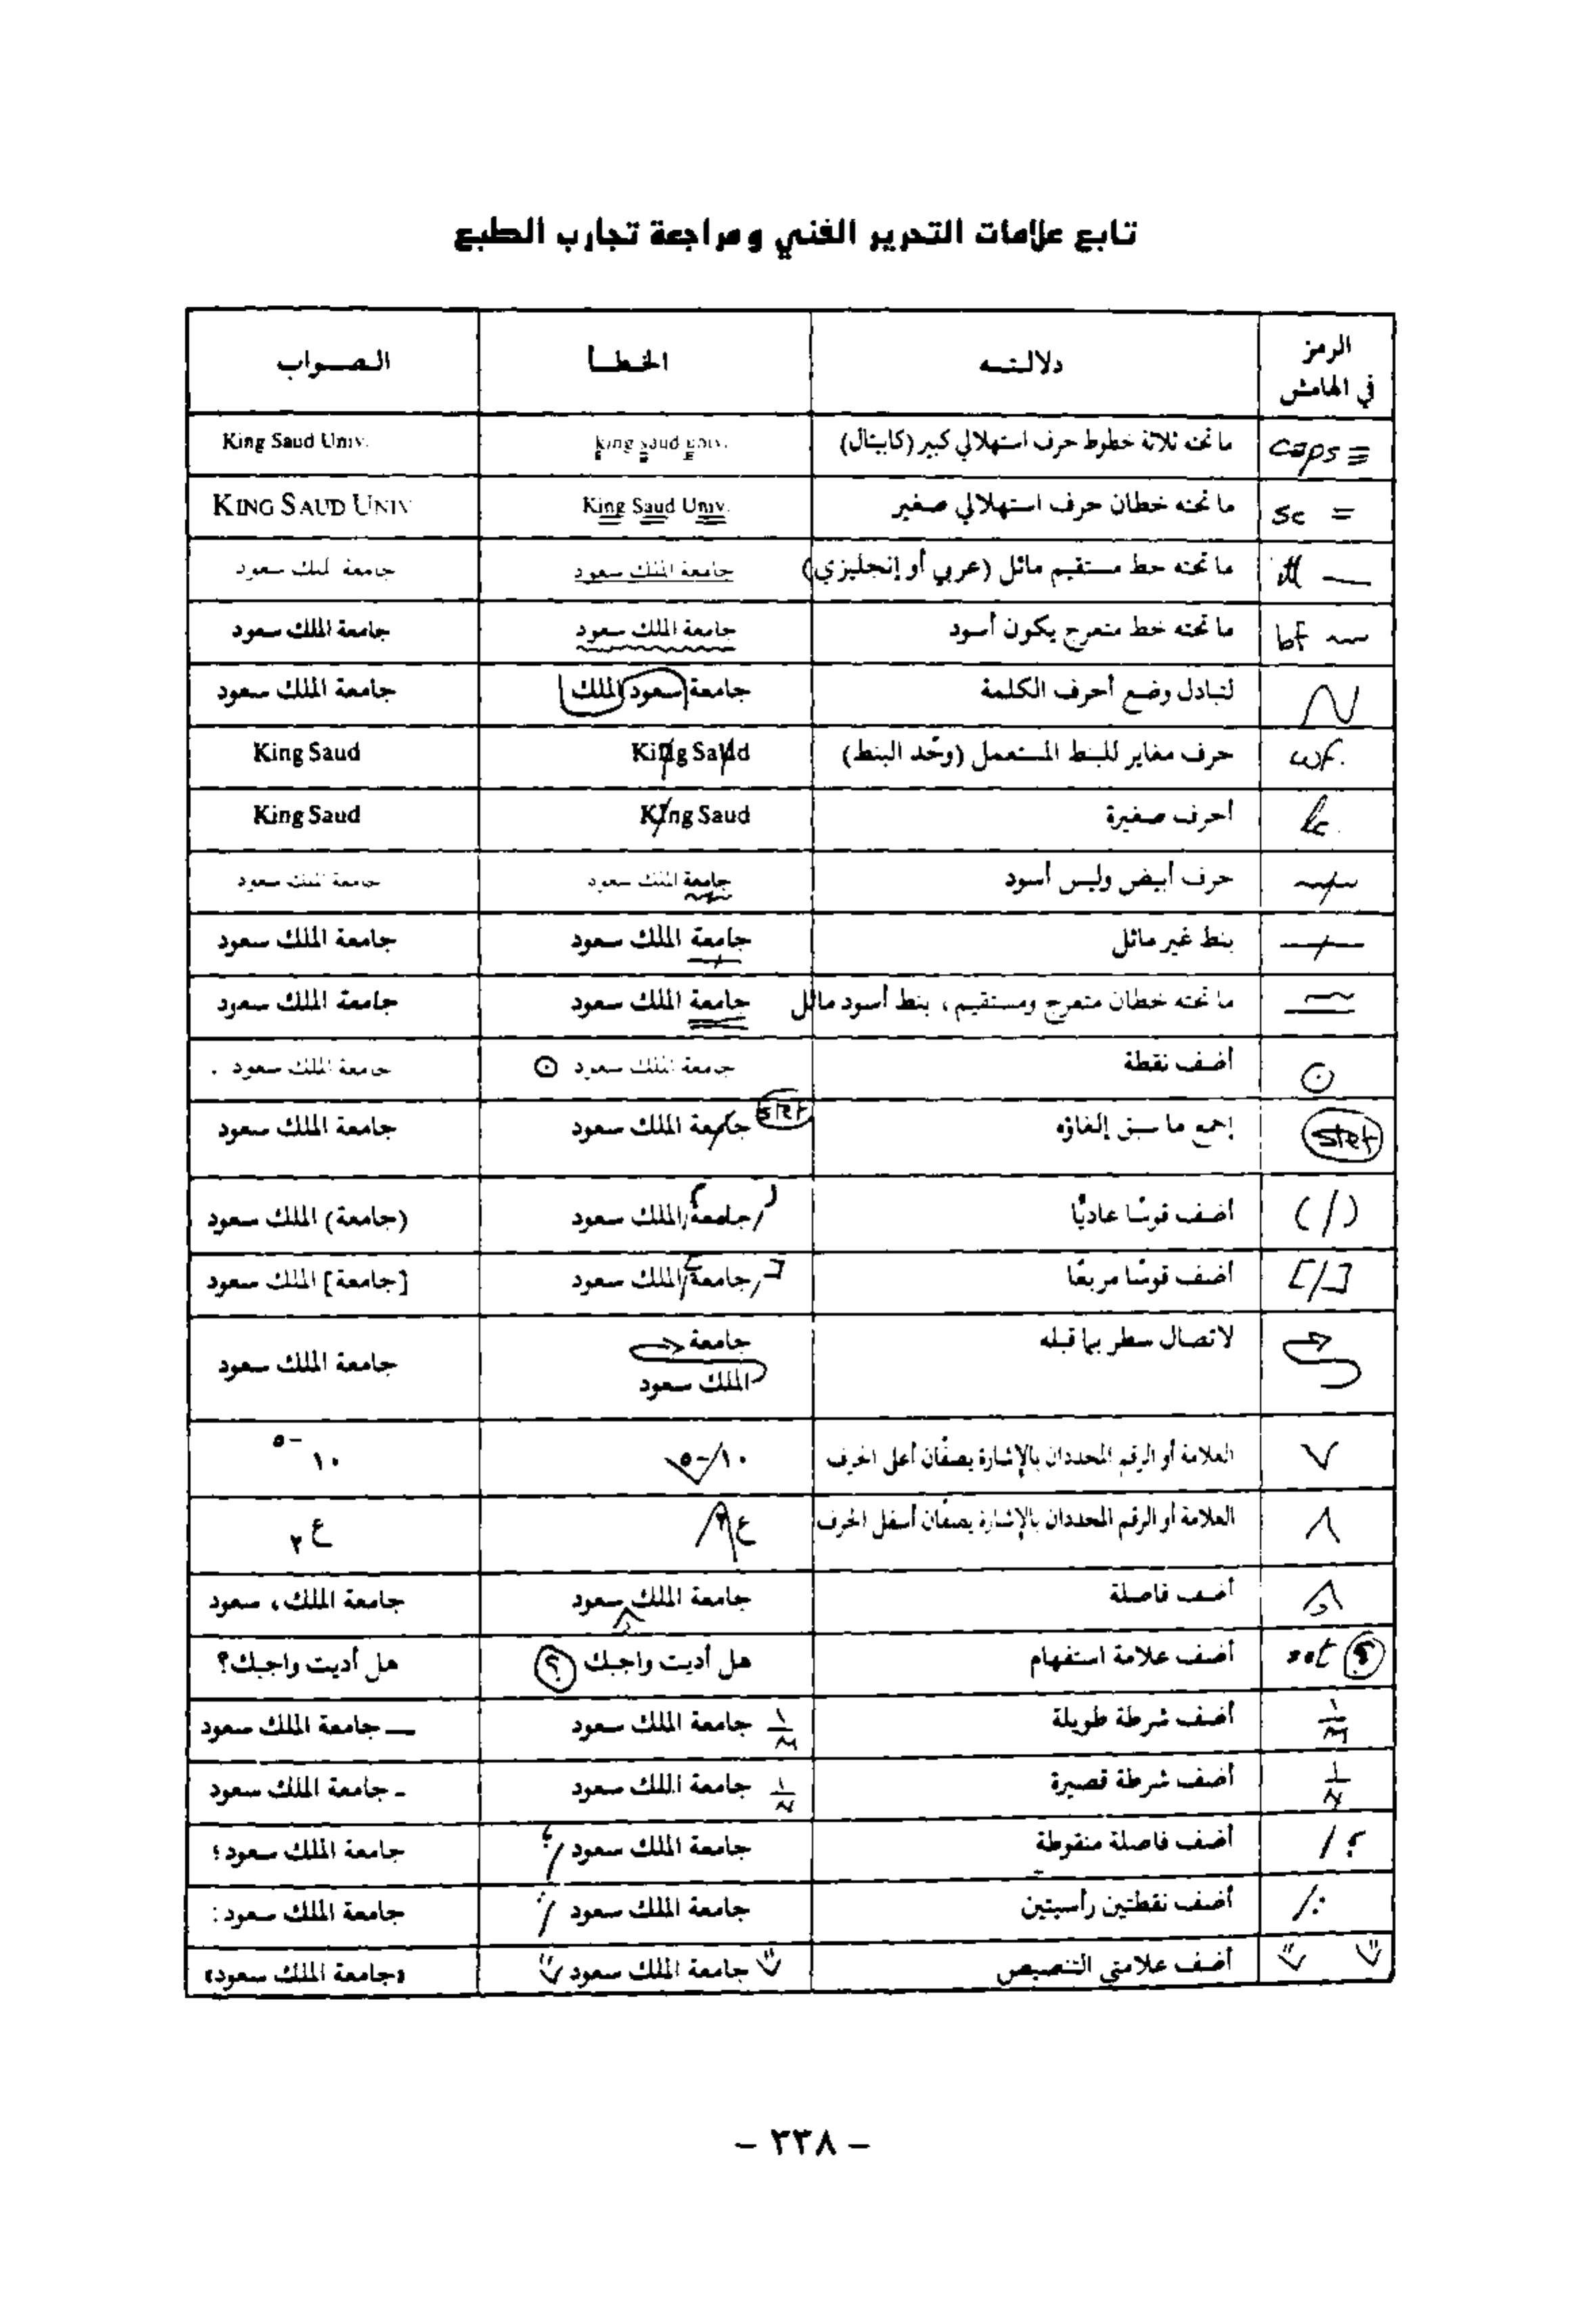 تابع علامات التحرير الفني ومراجعة تجارب الطبع
الرمز في الهامش دلالته الخطأ الصواب
caps ≡ ما تحته ثلاثة خطوط حرف استهلالي كبير (كابيتال) king saud univ. King Saud Univ.
sc = ما تحته خطان حرف استهلالي صغير King Saud Univ. KING SAUD UNIV
ما تحته خط مستقيم مائل (عربي أو إنجليزي) جامعة الملك سعود جامعة الملك سعود
bf ما تحته خط متعرج يكون أسود جامعة الملك سعود جامعة الملك سعود
لتبادل وضع أحرف الكلمة جامعة سعود الملك جامعة الملك سعود
wf. حرف مغاير للبنط المستعمل (وحّد البنط) King Saud King Saud
lc. أحرف صغيرة KIng Saud King Saud
حرف أبيض وليس أسود جامعة الملك سعود جامعة الملك سعود
بنط غير مائل جامعة الملك سعود جامعة الملك سعود
ما تحته خطان متعرج ومستقيم، بنط أسود مائل جامعة الملك سعود جامعة الملك سعود
⊙ أضف نقطة جامعة الملك سعود ⊙ جامعة الملك سعود .
stet إجمع ما سبق إلغاؤه stet جامعة الملك سعود جامعة الملك سعود
(/) أضف قوسًا عاديًّا جامعة الملك سعود (جامعة) الملك سعود
[/] أضف قوسًا مربعًا جامعة الملك سعود [جامعة] الملك سعود
لاتصال سطر بما قبله جامعة الملك سعود جامعة الملك سعود
العلامة أو الرقم المحددان بالإشارة يصفّان أعلى الحرف ١٠/-٥ ١٠ -٥
العلامة أو الرقم المحددان بالإشارة يصفّان أسفل الحرف ع٢ ع٢
أضف فاصلة جامعة الملك سعود جامعة الملك، سعود
؟ أضف علامة استفهام هل أديت واجبك ؟ هل أديت واجبك؟
١/M أضف شرطة طويلة ١/M جامعة الملك سعود — جامعة الملك سعود
١/N أضف شرطة قصيرة ١/N جامعة الملك سعود - جامعة الملك سعود
؛ / أضف فاصلة منقوطة جامعة الملك سعود /؛ جامعة الملك سعود؛
:/ أضف نقطتين رأسيتين جامعة الملك سعود /: جامعة الملك سعود:
أضف علامتي التنصيص جامعة الملك سعود «جامعة الملك سعود»
- ٢٣٨ -